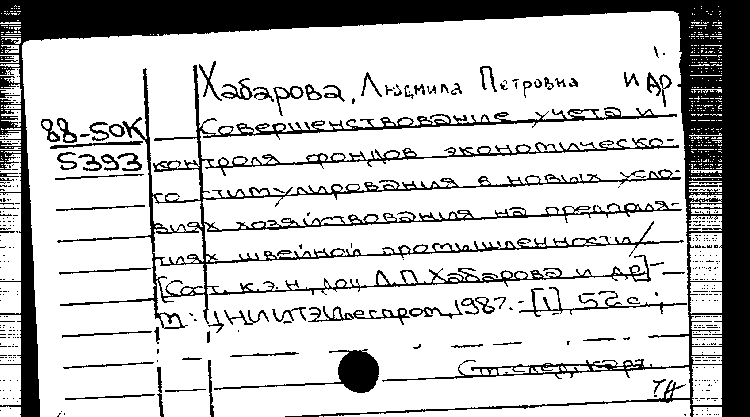 1.
Хабарова, Людмила Петровна и др.
88-50К
Совершенствование учета и
5393
контроля фондов экономическо-
го стимулирования в новых усло-
виях хозяйствования на предприя-
тиях швейной промышленности /
[Сост. к.э.н., доц. Л.П. Хабарова и др.] -
М.: ЦНИИТЭИлегпром, 1987. - [1], 52 с.;
См. след. карт.